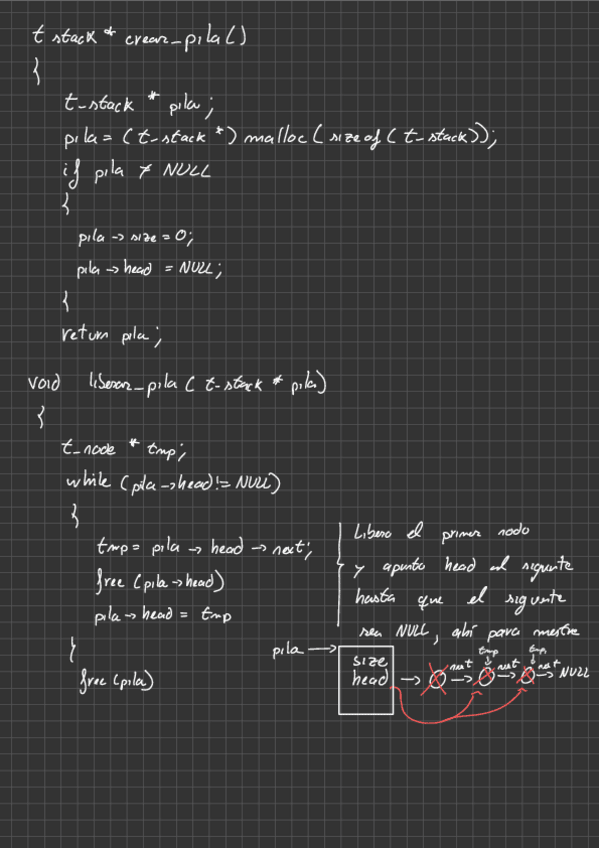 t stack * crear_pila()
{
t_stack * pila;
pila = (t_stack *) malloc(sizeof(t_stack));
if pila ≠ NULL
{
pila -> size = 0;
pila -> head = NULL;
{
return pila;
void liberar_pila (t_stack * pila)
{
t_node * tmp;
while (pila -> head != NULL)
{
tmp = pila -> head -> next;
free (pila -> head)
pila -> head = tmp
}
free (pila)
Libero el primer nodo
y apunto head al siguiente
hasta que el siguiente
sea NULL, ahi para
pila ->
size
head -> next -> next -> next -> NULL
tmp tmp